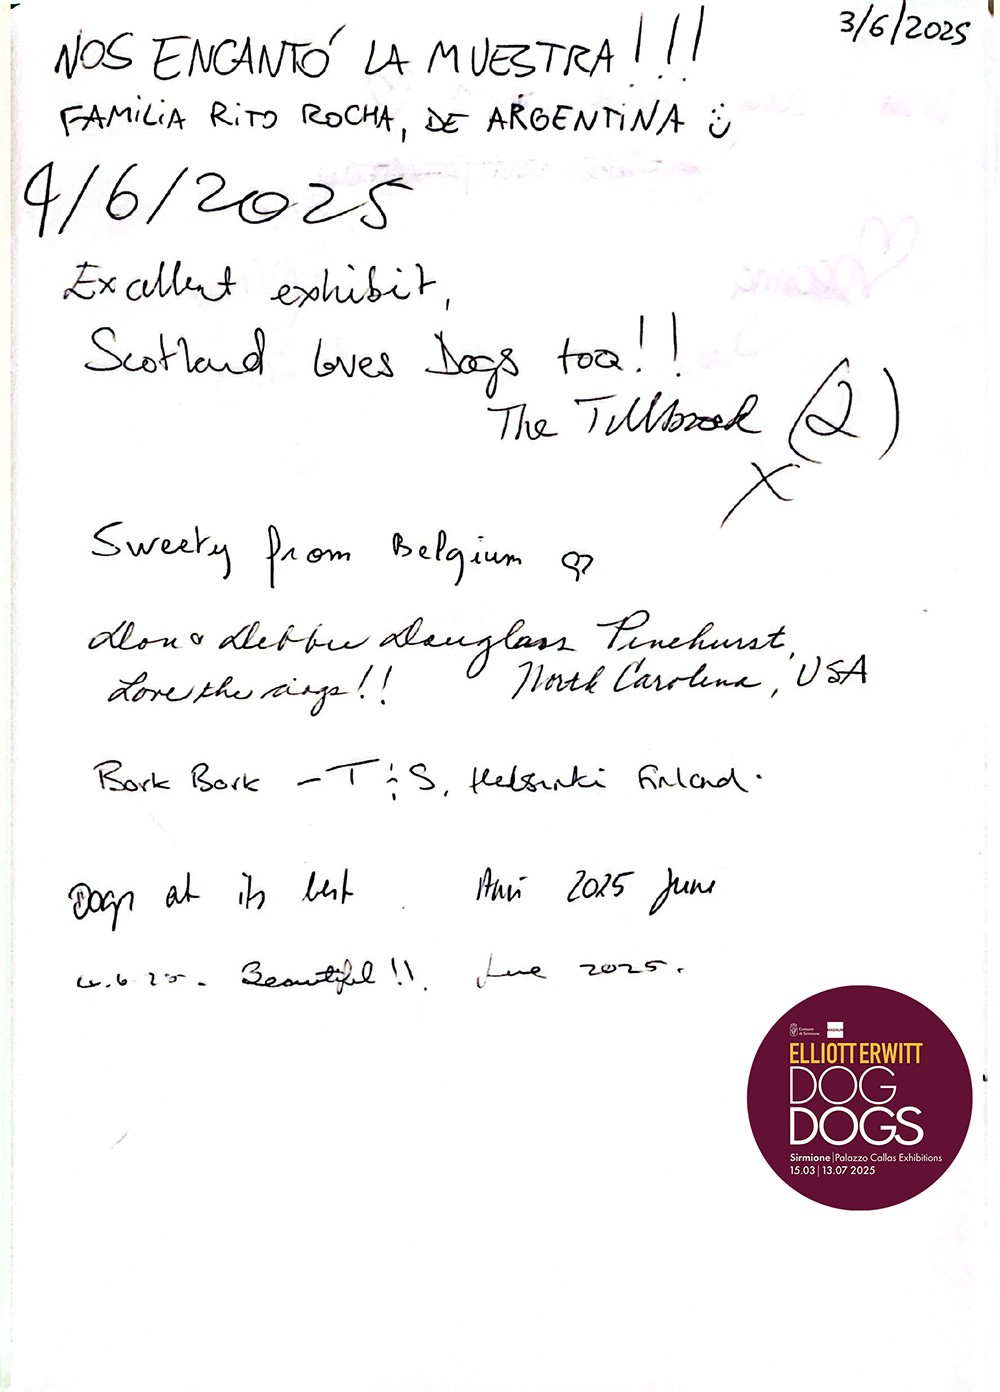 3/6/2025
NOS ENCANTÓ LA MUESTRA!!!
FAMILIA RITO ROCHA, DE ARGENTINA
4/6/2025
Excellent exhibit,
Scotland loves Dogs too!!
The (2)
X
Sweety from Belgium
Don & Debbie Douglass Pinehurst,
Love the dogs!! North Carolina, USA
Bork Bork - T S, Helsinki Finland.
Dogs at its best 2025 June
4.6.25. Beautiful!!. June 2025.
Comune
di Sirmione
MAGNUM
ELLIOTT ERWITT
DOG
DOGS
Sirmione | Palazzo Callas Exhibitions
15.03 | 13.07 2025